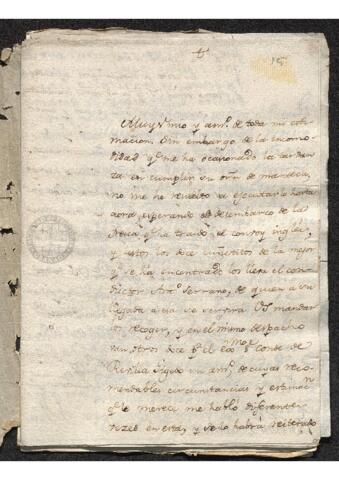 15
Muy Sr. mio y amo. de toda mi esti
macion. Sin embargo de la incomo
didad q. me ha ocasionado la tardan
za en cumplir su orn. de mandela,
no me he resuelto a ejecutarlo hasta
aora, esperando el desembarco de la
q. ha traido el convoy ingles,
y estos los doce de la mejor
q. se ha encontrado los lleva el con
ductor Anto. Serrano, de quien a su
llegada a esa se servira Vs. mandar
los recoger, y en el mismo despacho
van otros doce pa. el Exmo. Sr. Conde de
amo. de cuyas reco
mendables circunstancias y estimaon.
q. le merece me hablo diferentes
vezes en esta, y se lo habrá reiterado